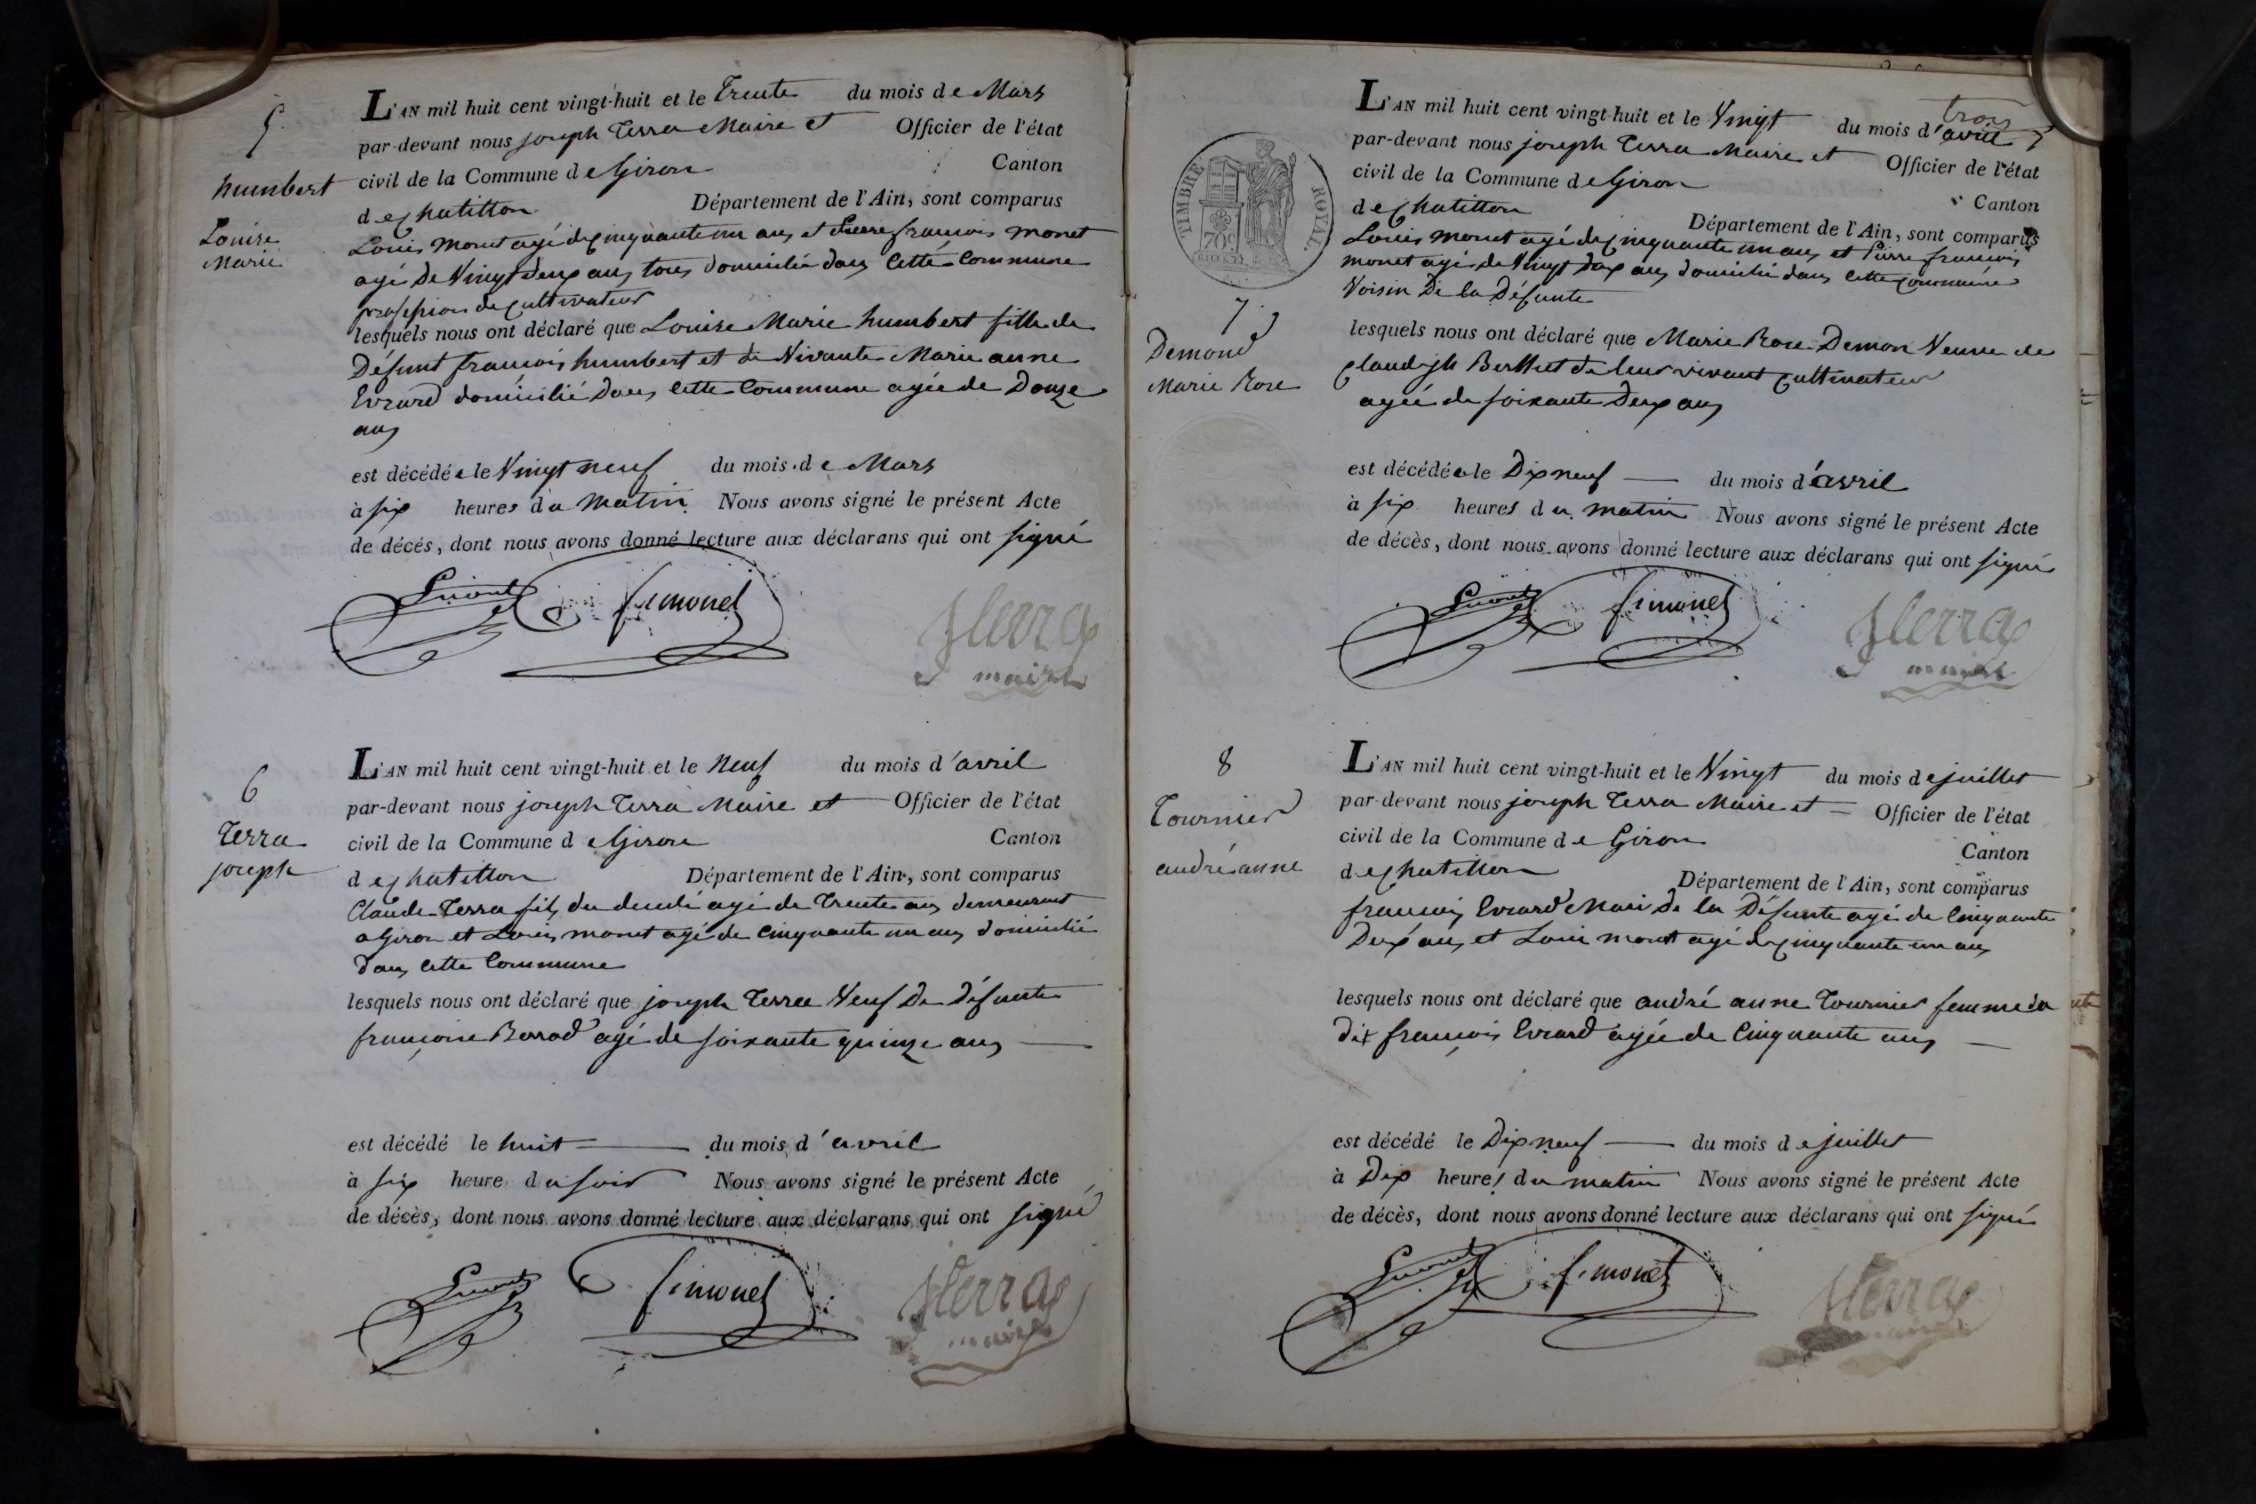 5.
humbert
Louise
Marie
L'AN mil huit cent vingt-huit et le Trente du mois de Mars
par-devant nous joseph Terra Maire et Officier de l'état
civil de la Commune de Giron Canton
de chatillon Département de l'Ain, sont comparus
Louis monet agé de cinquante un ans et Pierre francois monet
agé De Vingt deux ans tous domicilié dans cette Commune
profession de cultivateur
lesquels nous ont déclaré que Louise Marie humbert fille de
Défunt francois humbert et de Vivante Marie anne
Evrard domicilié dans cette Commune agée de Douze
ans
est décédée le Vingt neuf du mois de Mars
à six heures du matin Nous avons signé le présent Acte
de décés, dont nous avons donné lecture aux déclarans qui ont signé
Lmonet fimonet
JTerra
maire
6
Terra
joseph
L'AN mil huit cent vingt-huit et le Neuf du mois d'avril
par-devant nous joseph Terra Maire et Officier de l'état
civil de la Commune de Giron Canton
de chatillon Département de l'Ain, sont comparus
Claude Terra fils du decedé agé de Trente ans demeurant
a Giron et Louis monet agé de cinquante un ans domicilié
dans cette Commune
lesquels nous ont déclaré que joseph Terra Veuf De Défunte
francoise Borrod agé de soixante quinze ans
est décédé le huit du mois d'avril
à six heure du soir Nous avons signé le présent Acte
de décès, dont nous avons donné lecture aux déclarans qui ont signé
Lmonet fimonet
JTerra
maire
TIMBRE ROYAL
70c
7.
Demond
Marie Rose
L'AN mil huit cent vingt-huit et le Vingt trois du mois d'avril
par-devant nous joseph Terra Maire et Officier de l'état
civil de la Commune de Giron Canton
de chatillon Département de l'Ain, sont comparus
Louis monet agé de cinquante un ans et Pierre francois
monet agé de Vingt deux ans domicilié dans cette commune
Voisin De la Défunte
lesquels nous ont déclaré que Marie Rose Demon Veuve de
Claude jh Berthet de leur vivant cultivateur
agée de soixante Deux ans
est décédée le Dix neuf du mois d'avril
à six heures du matin Nous avons signé le présent Acte
de décès, dont nous avons donné lecture aux déclarans qui ont signé
Lmonet fimonet
JTerra
maire
8
Tournier
andré anne
L'AN mil huit cent vingt-huit et le Vingt du mois de juillet
par-devant nous joseph Terra Maire et Officier de l'état
civil de la Commune de Giron Canton
de chatillon Département de l'Ain, sont comparus
francois Evrard Mari De la Défunte agé de Cinquante
Deux ans et Louis monet agé de cinquante un ans
lesquels nous ont déclaré que andré anne Tournier femme du
dit francois Evrard agée de Cinquante ans
est décédé le Dix neuf du mois de juillet
à Dix heures du matin Nous avons signé le présent Acte
de décès, dont nous avons donné lecture aux déclarans qui ont signé
Lmonet fimonet
JTerra
maire